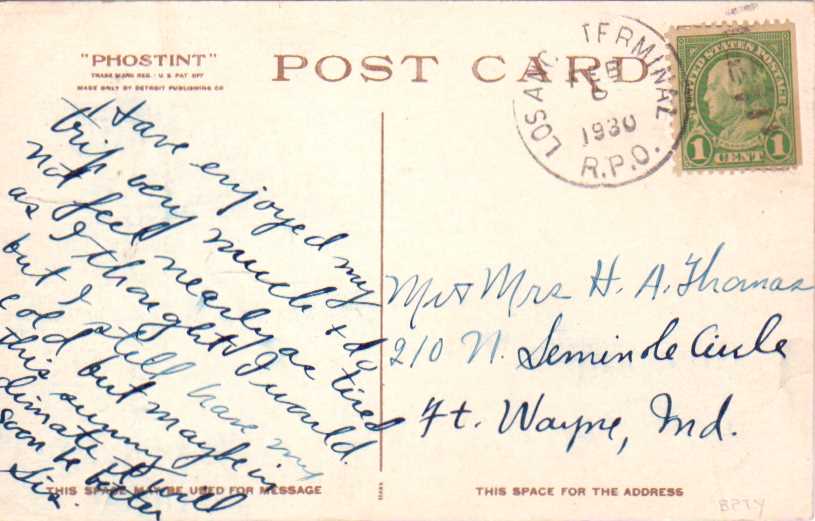 "PHOSTINT"
TRADE MARK REG. U.S. PAT OFF
MADE ONLY BY DETROIT PUBLISHING CO
POST CARD
LOS ANG. TERMINAL
FEB
1930
R.P.O.
UNITED STATES POSTAGE
1 CENT 1
I have enjoyed my
trip very much & do
not feel nearly as tired
as I thought I would.
but I still have my
cold but maybe in
this sunny
climate it will
soon be better
Sis.
Mr & Mrs H. A. Thomas
210 N. Seminole Circle
Ft. Wayne, Ind.
THIS SPACE MAY BE USED FOR MESSAGE
THIS SPACE FOR THE ADDRESS